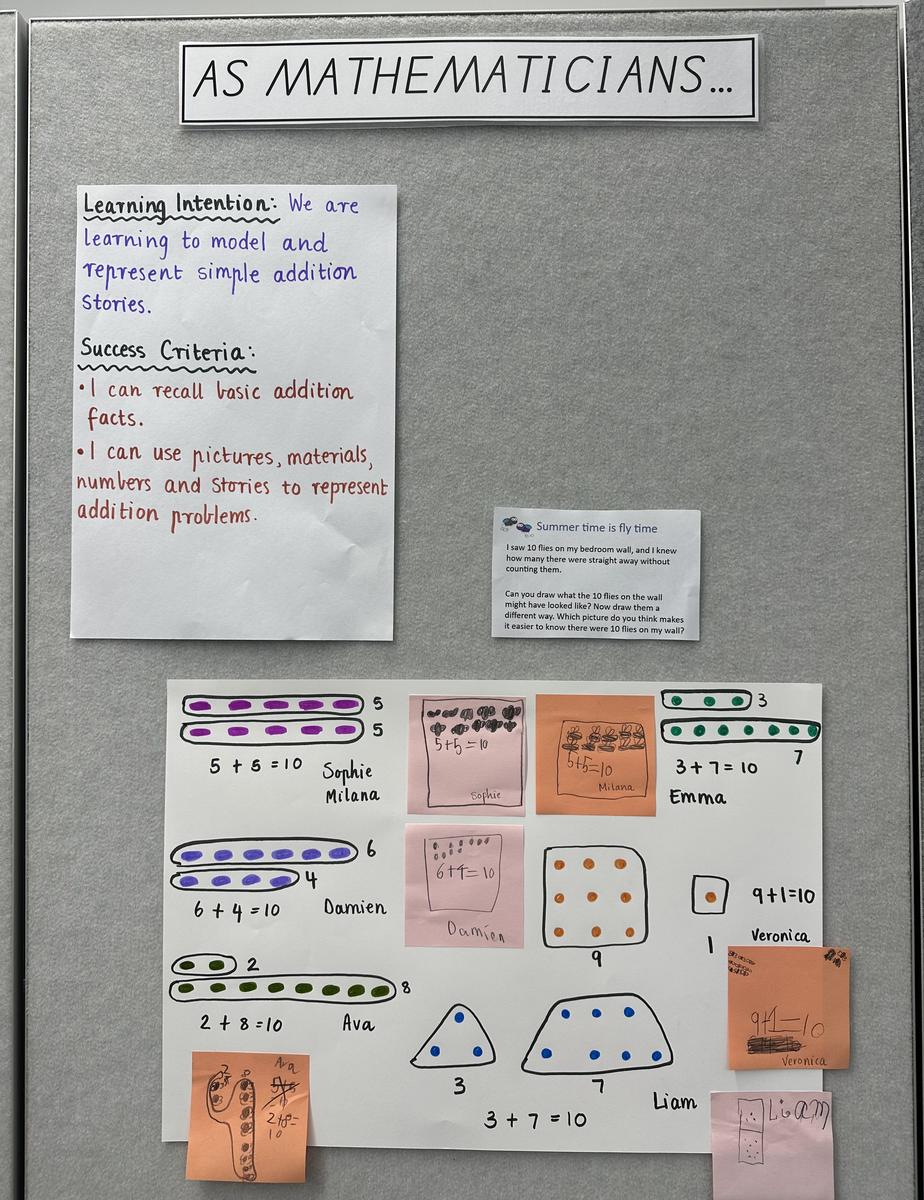 AS MATHEMATICIANS...
Learning Intention: We are
learning to model and
represent simple addition
Stories.
Success Criteria:
• I can recall basic addition
facts.
• I can use pictures, materials,
numbers and Stories to represent
addition problems.
Summer time is fly time
I saw 10 flies on my bedroom wall, and I knew
how many there were straight away without
counting them.
Can you draw what the 10 flies on the wall
might have looked like? Now draw them a
different way. Which picture do you think makes
it easier to know there were 10 flies on my wall?
5
5
5 + 5 = 10
Sophie
Milana
5+5=10
Sophie
5+5=10
Milana
3
7
3 + 7 = 10
Emma
6
4
6 + 4 = 10
Damien
6+4=10
Damien
9
1
9+1=10
Veronica
9+1=10
Veronica
2
8
2 + 8 = 10
Ava
2
8
Ava
2+8=
10
3
7
3 + 7 = 10
Liam
Liam